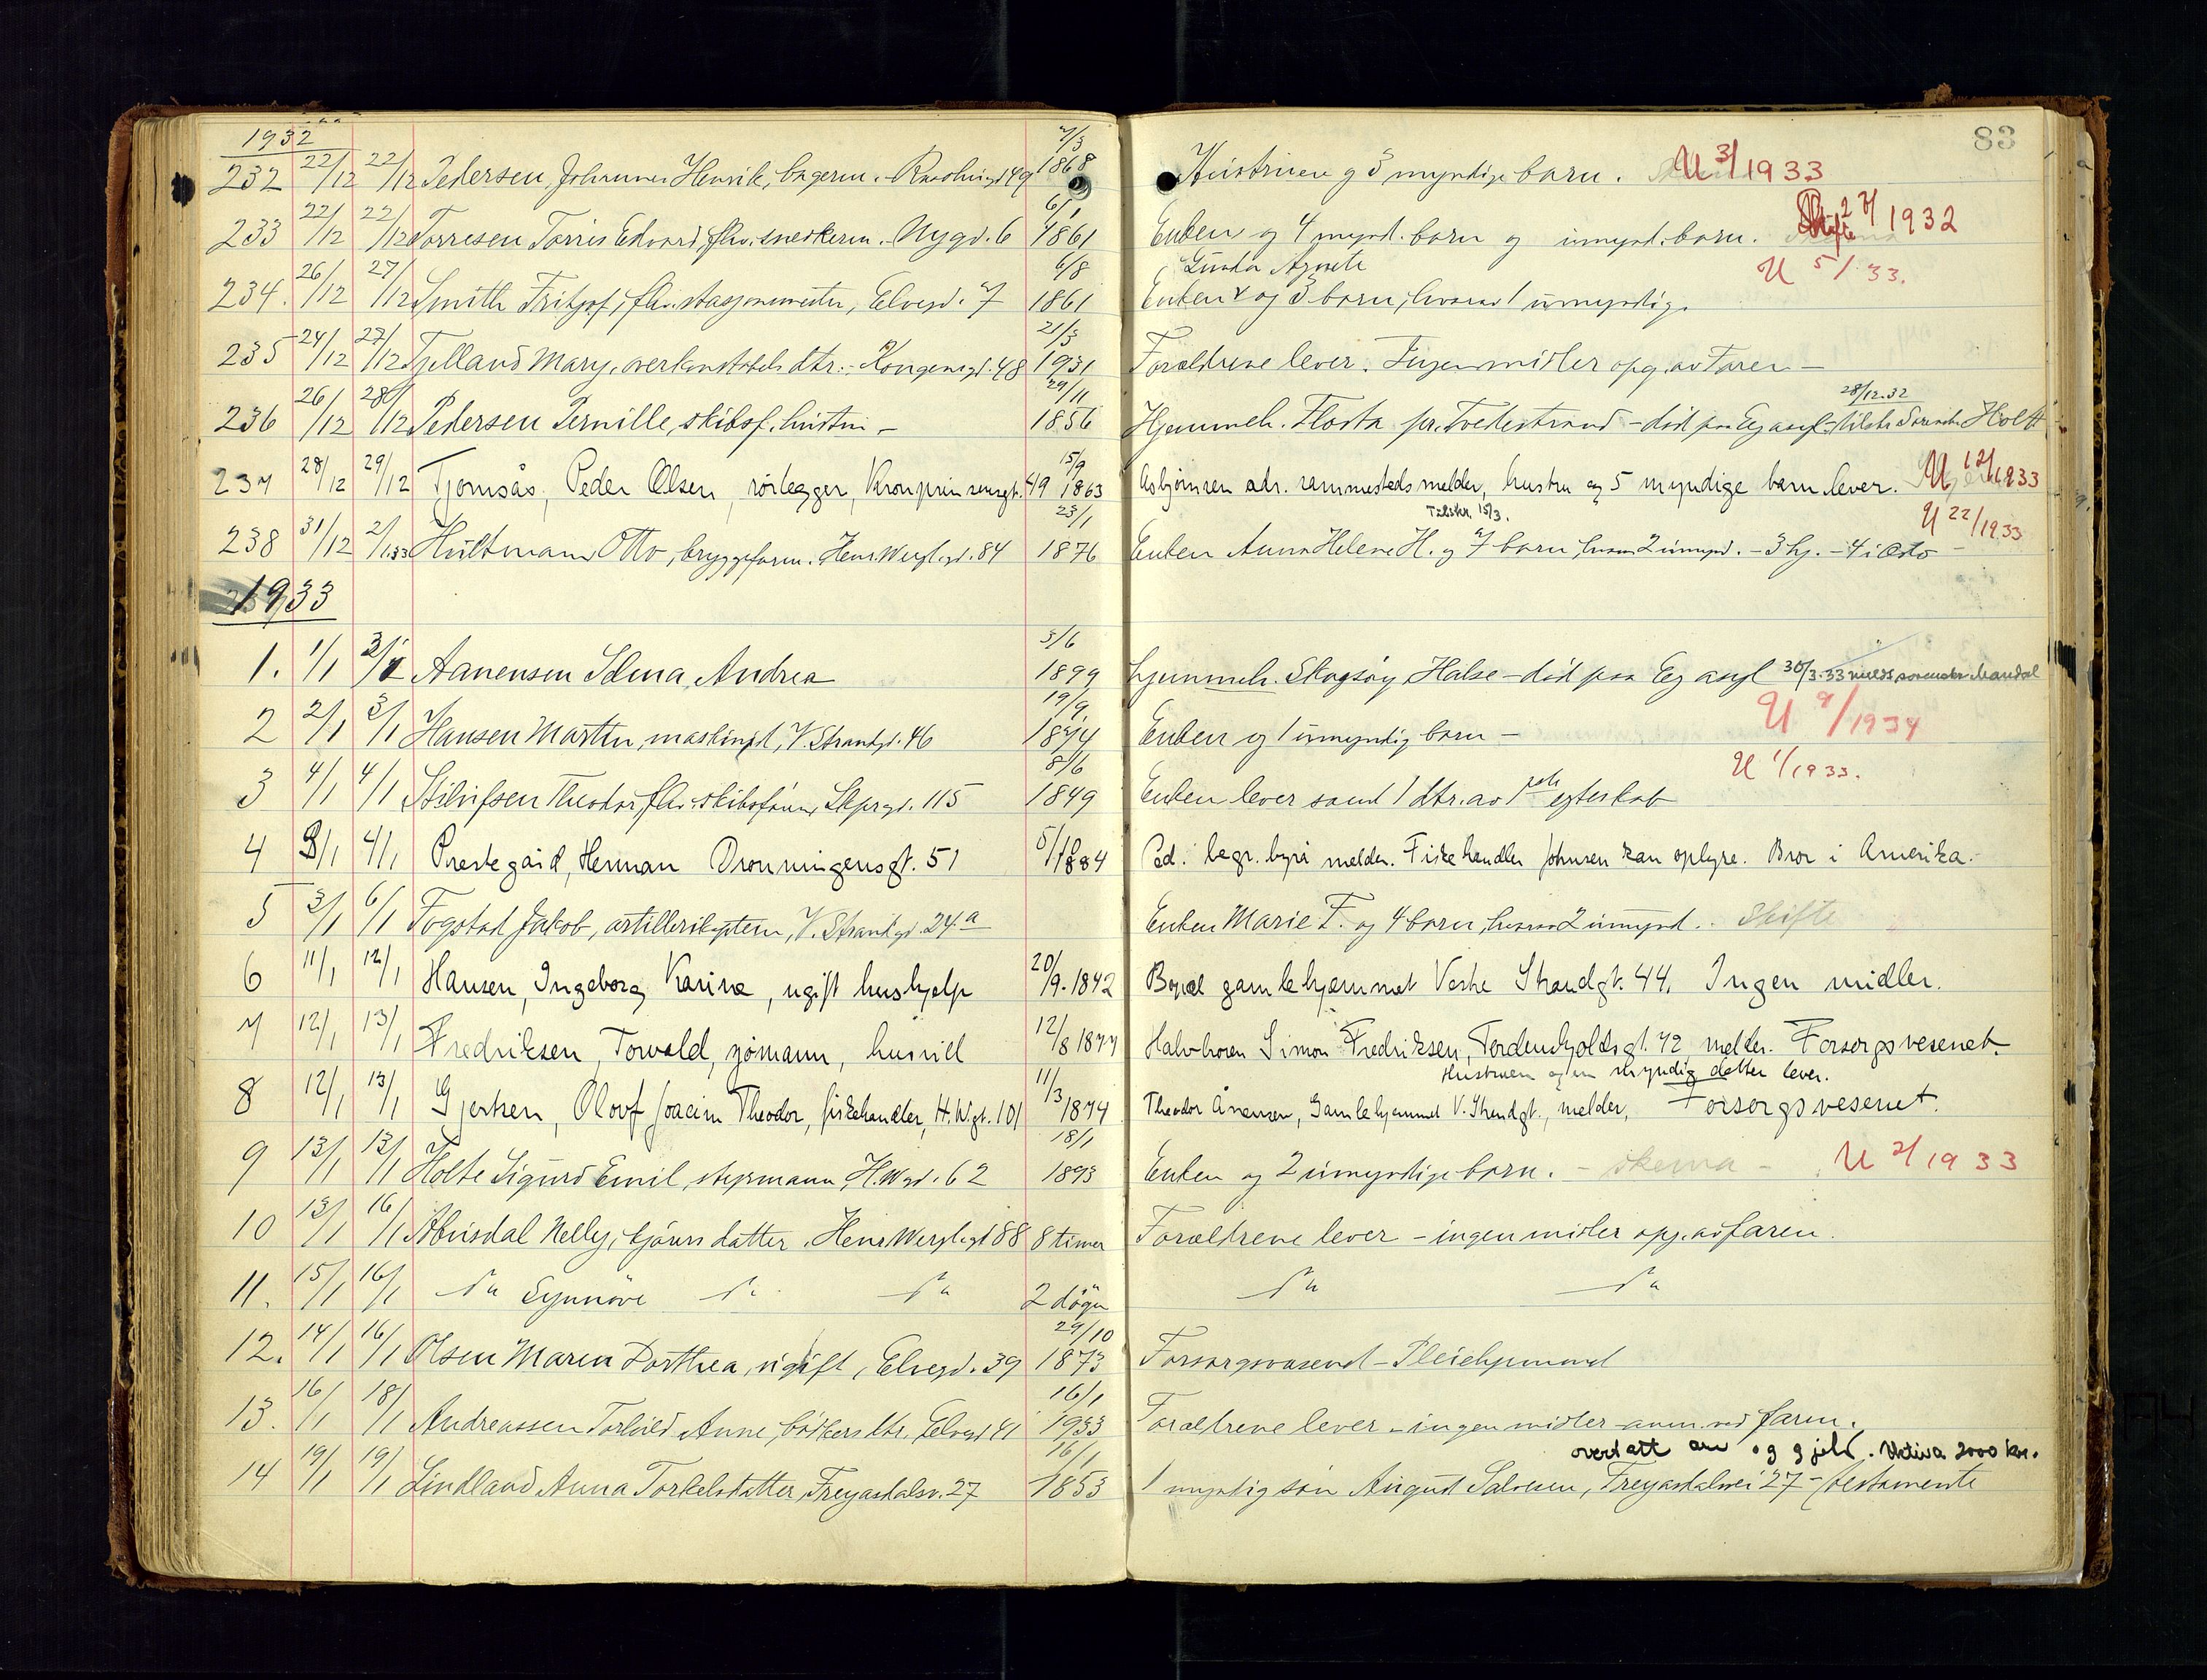 83
1932
232 22/12 22/12 Pedersen, Johannes Henrik, bagerm. 49 7/3 1868 Hustruen og 5 myndige barn. U 3/1933
233 22/12 22/12 Torresen Torris Edvard, fhv. snedkerm. Nygd. 6 6/1 1861 Enken og 4 mynd. barn og umynd. barn. Skifte 1932
U 5/33.
Gunda Agnete
234. 26/12 27/12 Smith Fritjof, fhv. stasjonsmester, Elvegd. 7 6/8 1861 Enken og 3 barn, hvorav 1 umyndig.
235 24/12 27/12 Tjelland Mary, overkonstabels dtr. Kongensgd. 48 21/3 1931 Forældrene lever. Ingen midler opg. av Faren –
28/12.32
236 26/12 28/12 Pedersen Pernille, skibsf. hustru – 29/11 1856 Hjemmeh. Flosta pr. Tvedestrand – død paa Eg asyl – Holt
237 28/12 29/12 Tjomsås, Peder Olsen, rörlegger, Kronprinsensgt. 49 15/9 1863 Asbjørnsen adr. sammesteds melder, hustru og 5 myndige barn lever. U 12/1933
Tilskr. 15/3.
238 31/12 2/1.33 Hultmann Otto, bryggeform. Henr. Wergl.gd. 84 23/1 1876 Enken Anna Helene H. og 7 barn, hvorav 2 umynd. – 3 hj. – 4 i Oslo – U 22/1933
1933
1. 1/1 Aanensen Selma Andrea 5/6 1899 hjemmeh. Skogsøy, Halse – død paa Eg asyl 30/3.33 Mandal
2 2/1 3/1 Hansen Martin, maskinist, V. Strandgd. 46 19/9 1874 Enken og 1 umyndig barn – U 9/1934
3 4/1 4/1 Theodor, fhv. skibsfører, Skiprgd. 115 8/6 1849 Enken lever samt 1 dtr. av 1ste egteskab U 1/1933.
4 3/1 4/1 Prestegård, Herman Dronningensgt. 51 5/10 1884 Ped. begr. byrå melder. Fiskehandler Johnsen kan oplyse. Bror i Amerika.
5 3/1 6/1 Fogstad Jakob, artillerikaptein, V. Strandgd. 24.a Enken Marie F. og 4 barn, hvorav 2 umynd. Skifte
6 11/1 12/1 Hansen, Ingeborg Karine, ugift hushjelp 20/9.1842 Bopæl gamlehjemmet Vestre Strandgt. 44. Ingen midler.
7 12/1 13/1 Fredriksen, Torvald, sjömann, husvill 12/8 1877 Halvbroren Simon Fredriksen, Tordenskjoldsgt. 42 melder. Forsorgsvesenet.
Hustruen og en myndig datter lever.
8 12/1 13/1 Gjertsen, Olouf Joacim Theodor, fiskehandler, H.W.gt. 101 11/3 1874 Theodor Ånensen, Gamlehjemmet V. Strandgt., melder, Forsorgsvesenet.
9 13/1 13/1 Holte Sigurd Emil, styrmann, H.W.gd. 62 18/1 1893 Enken og 2 umyndige barn. – skema – U 2/1933
10 13/1 16/1 Abusdal Nelly, kjørers datter, Henr. Wergl.gd 88 8 timer Forældrene lever – ingen midler opg. av faren.
11. 15/1 16/1 " Synnöve " " 2 døgn " "
12. 14/1 16/1 Olsen Maren Dorthea, ugift, Elvegd. 39 29/10 1873 Forsorgsvæsend – Pleiehjemmed
13. 16/1 18/1 Andreassen Torhild Anne, bødkers dtr. Elvegd 41 16/1 1933 Forældrene lever – ingen midler – anm. ved faren.
overtatt arv og gjeld. Aktiva 2000 kr.
14 19/1 19/1 Lindland Anna Torkelsdatter, Freyasdalsv. 27 16/1 1853 1 myndig søn August Salvesen, Freyasdalsvei 27 – testamente